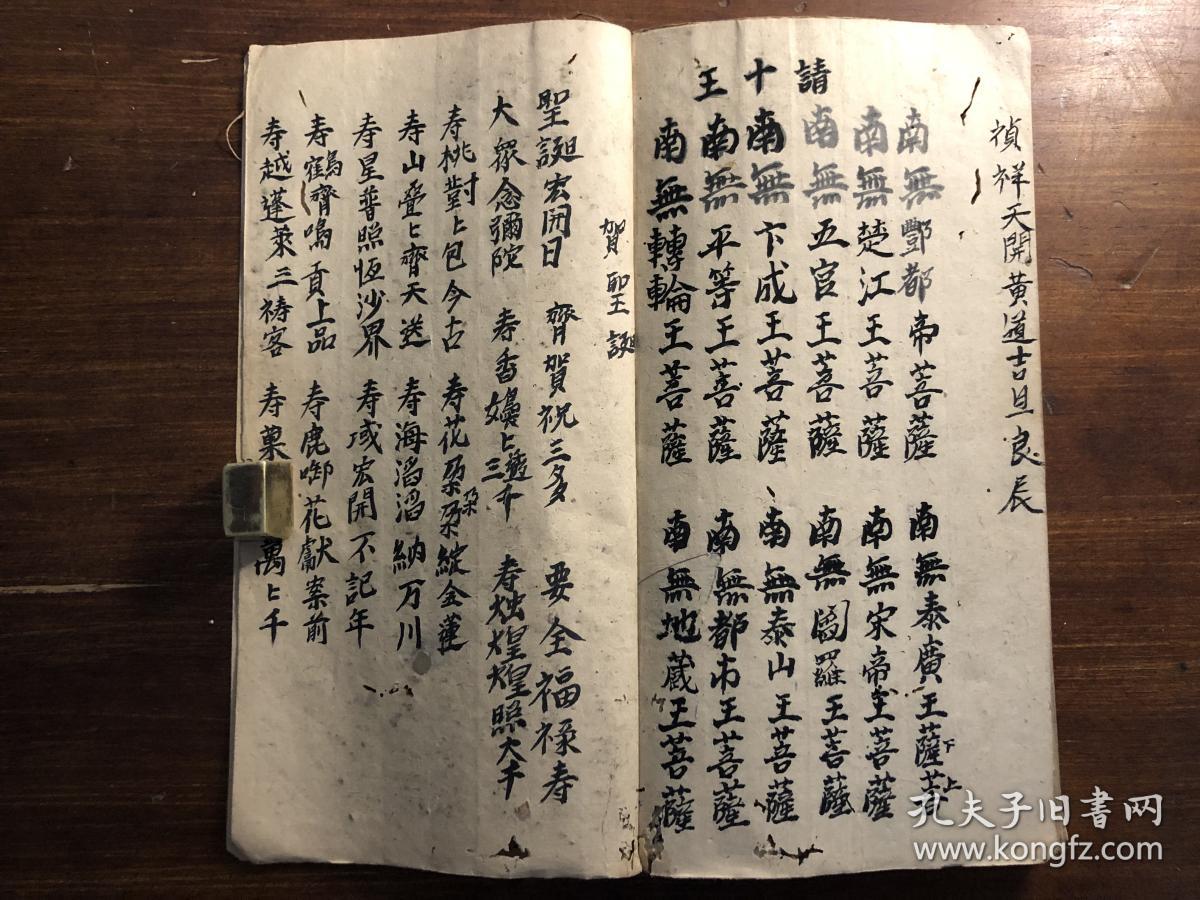 禎祥天開黃道吉旦良辰
請十王
南無酆都帝菩薩 南無泰廣王薩菩下上
南無楚江王菩薩 南無宋帝王菩薩
南無五官王菩薩 南無閻羅王菩薩
南無卞成王菩薩 南無泰山王菩薩
南無平等王菩薩 南無都市王菩薩
南無轉輪王菩薩 南無地蔵王菩薩
賀聖誕
聖誕宏開日 齊賀祝三多 要全福祿寿
大眾念彌陀 寿香嬝上透三天 寿烛煌煌照大千
寿桃對上包今古 寿花朶朶綻金蓮
寿山疊上齊天送 寿海滔滔納万川
寿星普照恆沙界 寿域宏開不記年
寿鶴齊鳴貢上品 寿鹿啣花獻案前
寿越蓬萊三祷客 寿菓 萬上千
孔夫子旧书网
www.kongfz.com